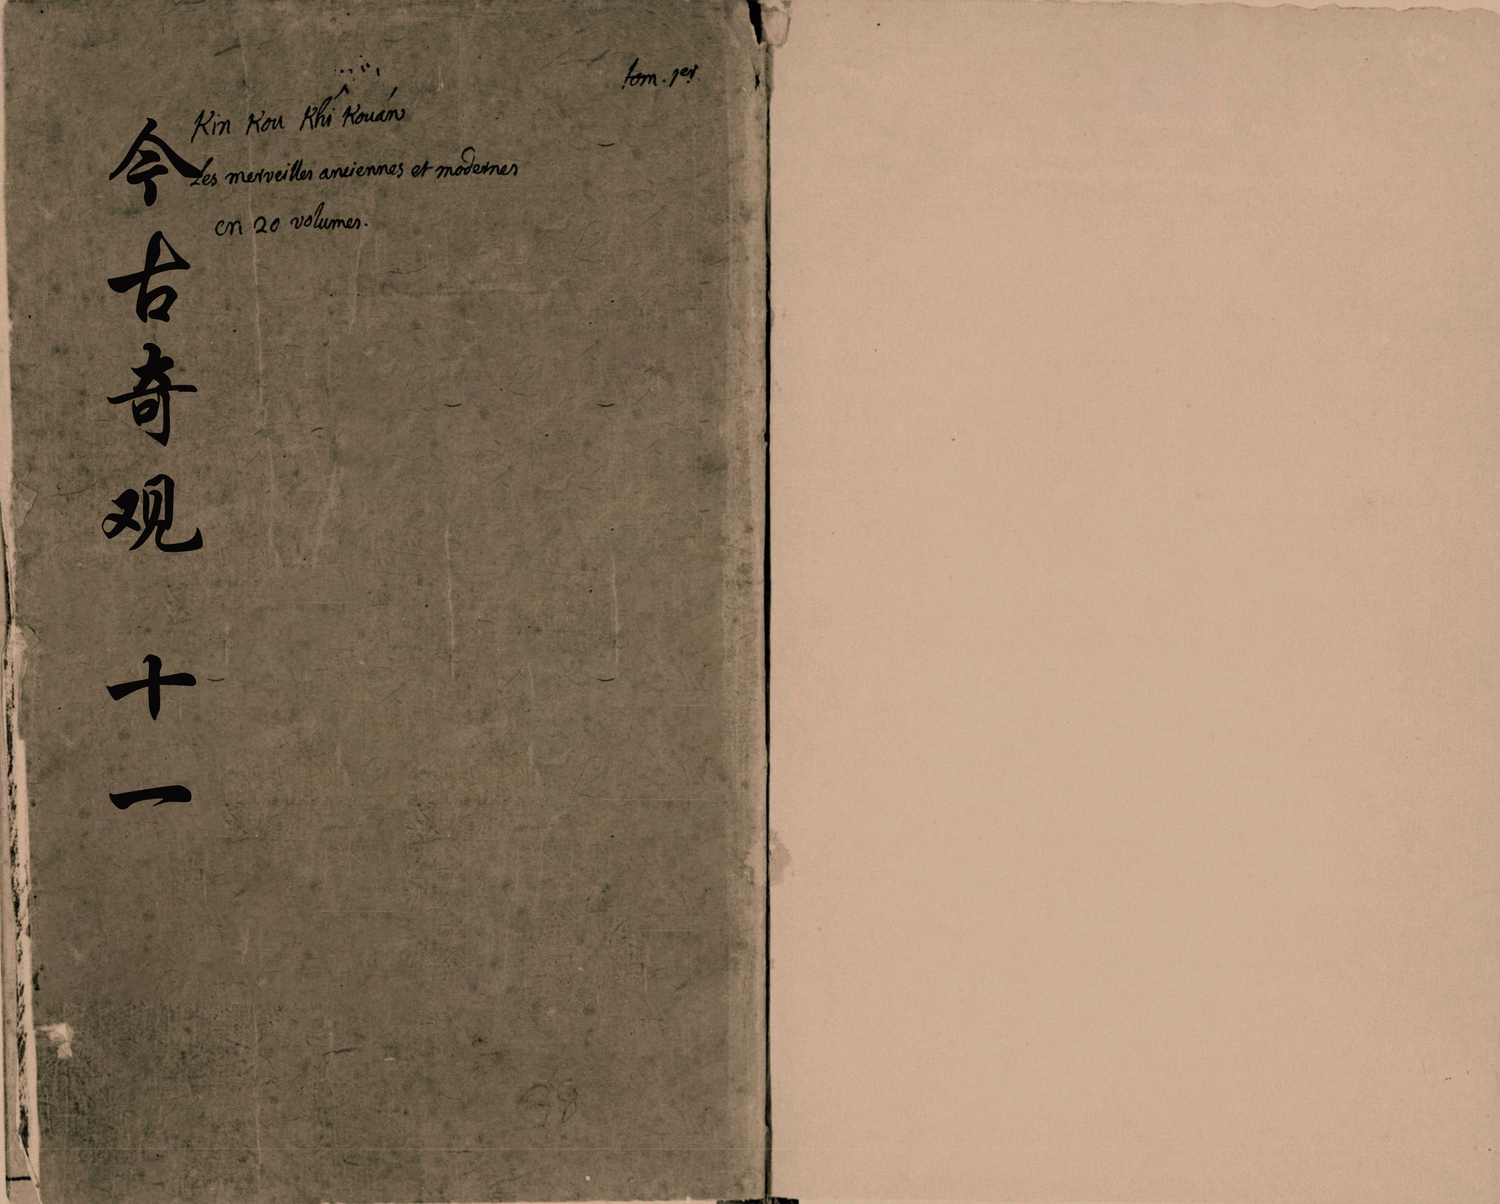 今古奇观 十一
tom. 1er
Kin Kou Khî Kouán
Les merveilles anciennes et modernes
en 20 volumes.